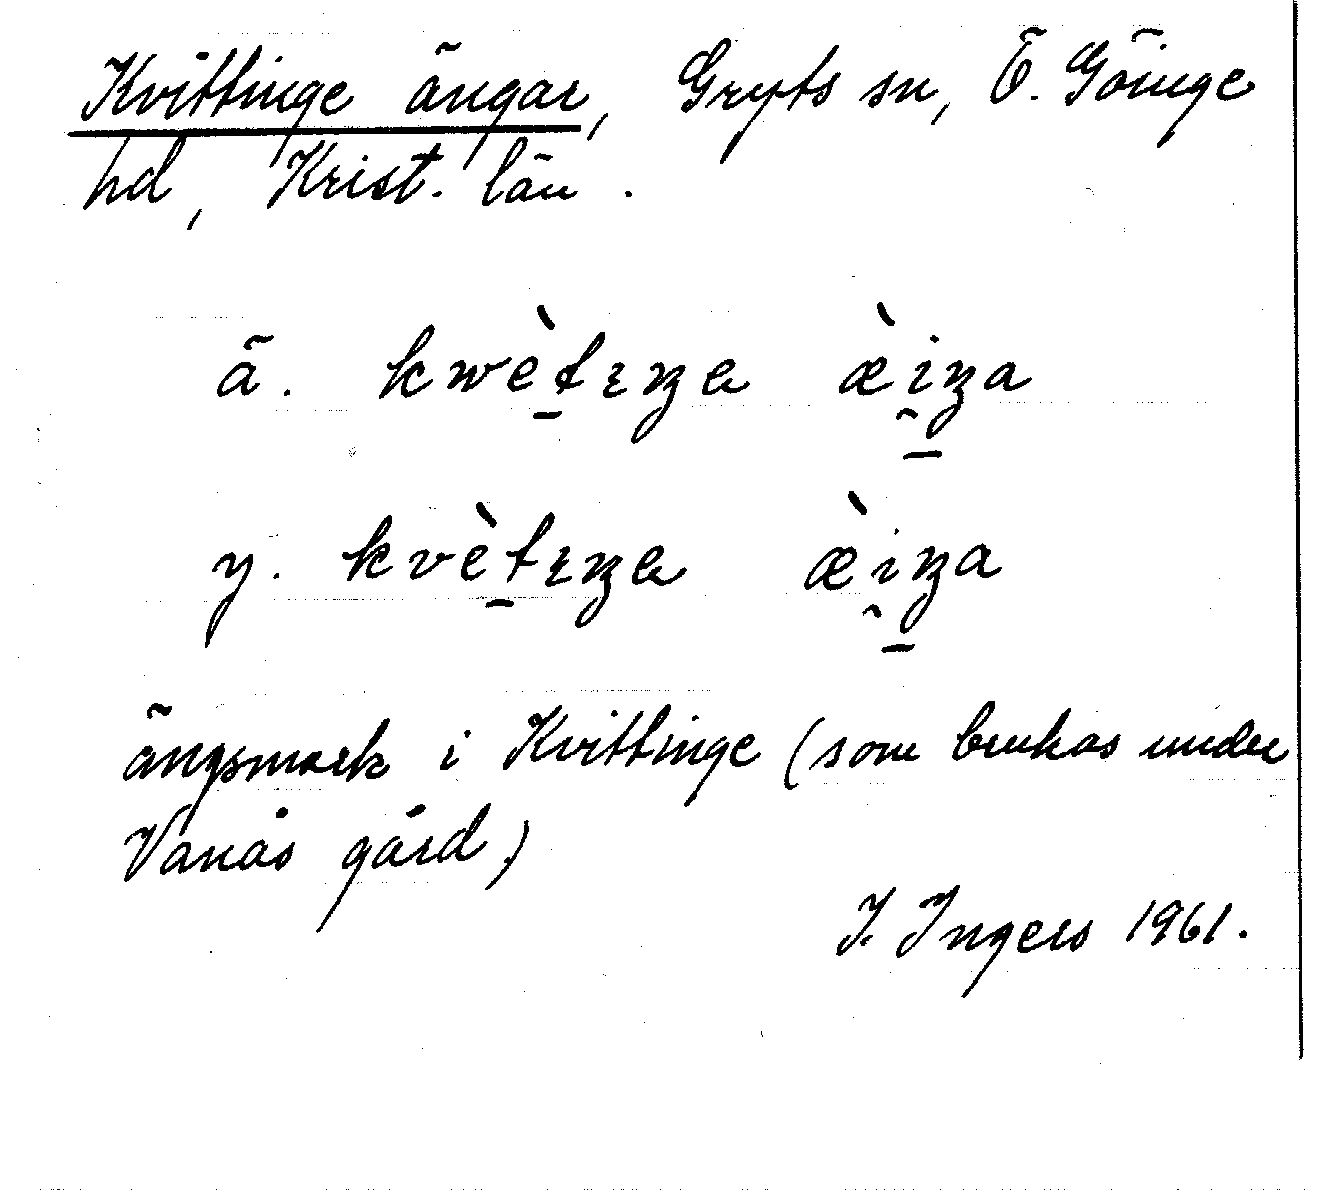 Kvittinge ängar, Gryts sn, Ö. Göinge
hd, Krist. län.
ä. kwètɪŋa æ̀i̯ŋa
y. kvètɪŋa æ̀i̯ŋa
ängsmark i Kvittinge (som brukas under
Vanås gård.)
I. Ingers 1961.